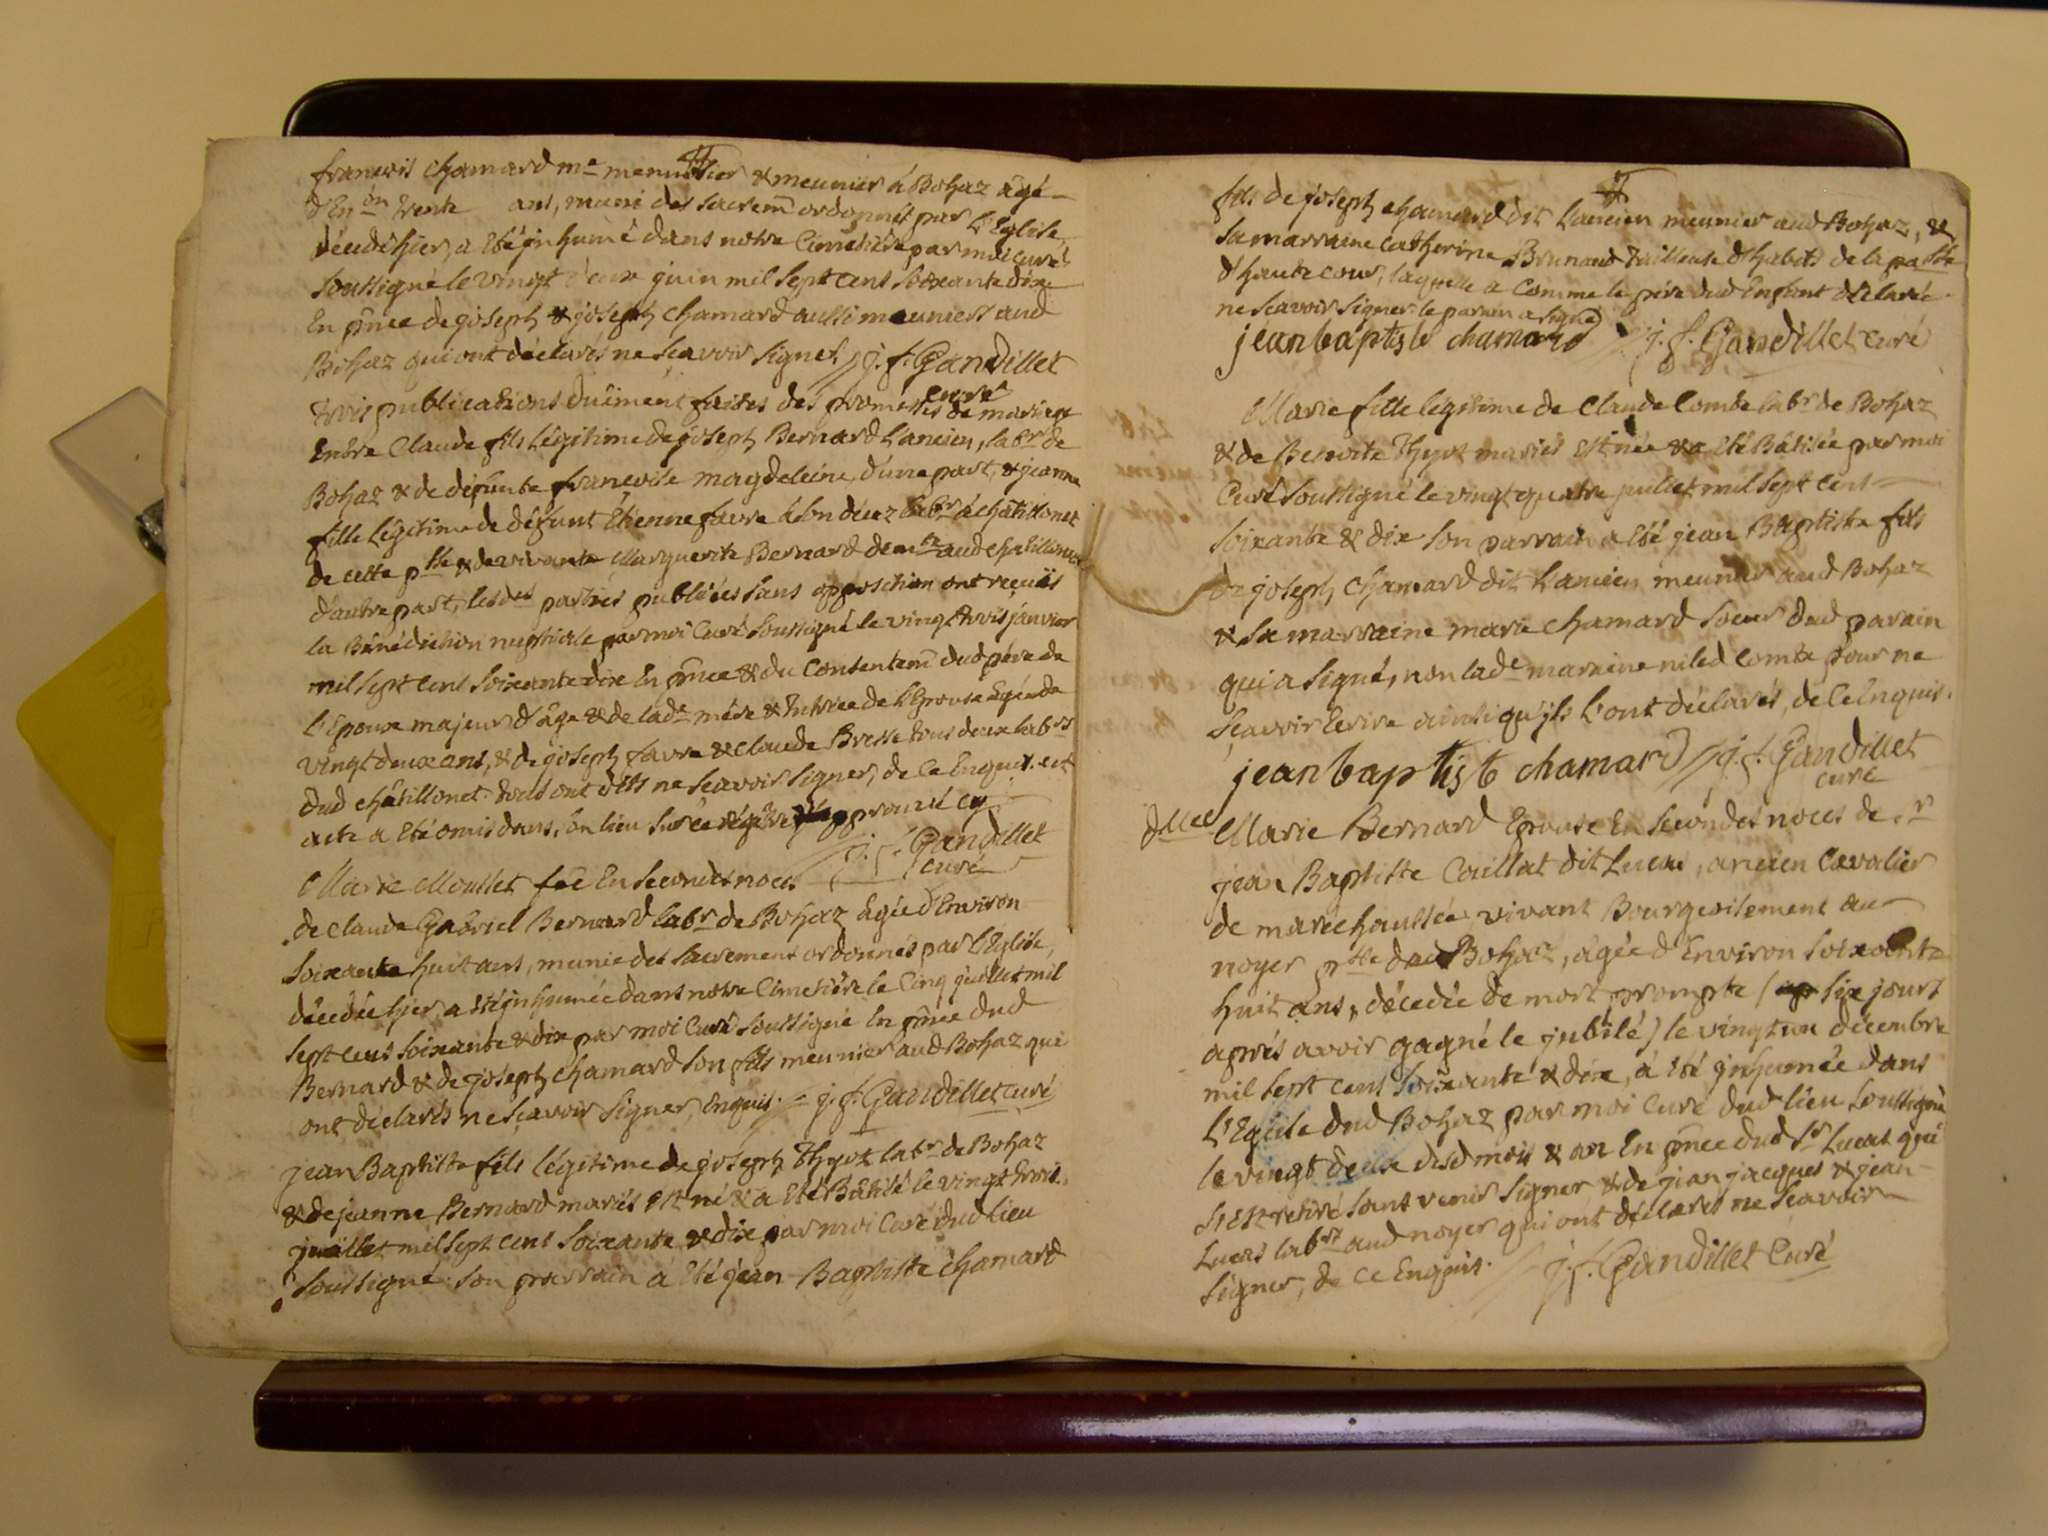 francois chamard me menuisier & meunier à Bohaz âgé
d'Enon trente ans, muni des sacremt ordonnés par L'Eglise,
décédé hier, a Eté jnhumé dans notre Cimetière par moi curé
soussigné le vingt deux juin mil sept cent soixante dix
En pnce de joseph & joseph chamard aussi meuniers aud
Bohaz qui ont déclarés ne sçavoir signer. j. f. Gandillet
curé
trois publications duëment faites des promesses de mariage
Entre Claude fils Légitime de joseph Bernard L'ancien, labr de
Bohaz & de défunte francoise magdeleine, d'une part, & jeanne
fille Légitime de défunt Etienne favre à son décez labr à châtillonet
de cette psse & de vivante Marguerite Bernard demte aud chatillonet
d'autre part, lesdes parties publiées sans opposition ont recuës
la Bénédiction nuptiale par moi Curé soussigné le vingt trois janvier
mil sept cent soixante dix En pnce & du Consentemt dud père de
L'Epoux majeur d'âge & de lade mére & tutrice de l'Epouse âgée de
vingt deux ans, & de joseph favre & Claude Bresse tous deux labrs
dud châtillonet. tous ont dits ne sçavoir signer, de Ce Enquis. cet
acte a Eté omis dans son lieu sur ce régitre approuvé
j. f. Gandillet
curé
Marie Mousset fme En secondes noces
de Claude Gabriel Bernard labr de Bohaz âgée d'Environ
soixante huit ans, munie des sacremens ordonnés par l'Eglise,
décédée hjer, a Eté jnhumée dans notre Cimetière le Cinq juillet mil
sept cent soixante & dix par moi Curé soussigné En pnce dud
Bernard & de joseph chamard son fils meunier aud Bohaz qui
ont déclarés ne sçavoir signer, Enquis. j. f. Gandillet curé
jean Baptiste fils légitime de joseph Thyot labr de Bohaz
& de jeanne Bernard mariés Est né & a Eté Bâtisé le vingt trois
juillet mil sept cent soixante & dix par moi Curé dud lieu
soussigné son parrain a Eté jean Baptiste chamard
fils de joseph chamard dit L'ancien meunier aud Bohaz, &
sa marraine Catherine Brunaud tailleuse d'habits de la psse
d'hautecour, laquelle a Comme le père dud Enfant déclarée
ne sçavoir signer. le parain a signé
jean baptiste chamard j. f. Gandillet curé
Marie fille légitime de Claude Combe labr de Bohaz
& de Benoite Thyot mariés Est née & a Eté Bâtisée par moi
Curé soussigné le vingt quatre juliet mil sept cent
soixante & dix son parrain a Eté jean Baptiste fils
de joseph chamard dit L'ancien meunier aud Bohaz
& sa marraine marie chamard soeur dud parain
qui a signé, non lade maraine ni led combe pour ne
sçavoir Ecrire ainsi qu'jls l'ont déclarés, de Ce Enquis.
jean baptist chamard j. f. Gandillet
curé
Marie Bernard Epouse En secondes noces de sr
jean Baptiste Caillat dit Lucas, ancien Cavalier
de marechaussée vivant Bourgeoisement au
noyer psse dud Bohaz, âgée d'Environ soixante
huit ans, décedée de mort prompte (six jours
aprés avoir gagné le jubilé) le vingt un décembre
mil sept cent soixante & dix, à Eté jnhumée dans
L'Eglise dud Bohaz par moi Curé dud lieu soussigné
le vingt deux desd mois & an En pnce dud sr Lucas qui
s'Est retiré sans venir signer & de jean jacques & jean
Lucas labrs aud noyer qui ont déclarés ne sçavoir
signer, de Ce Enquis. j. f. Gandillet Curé